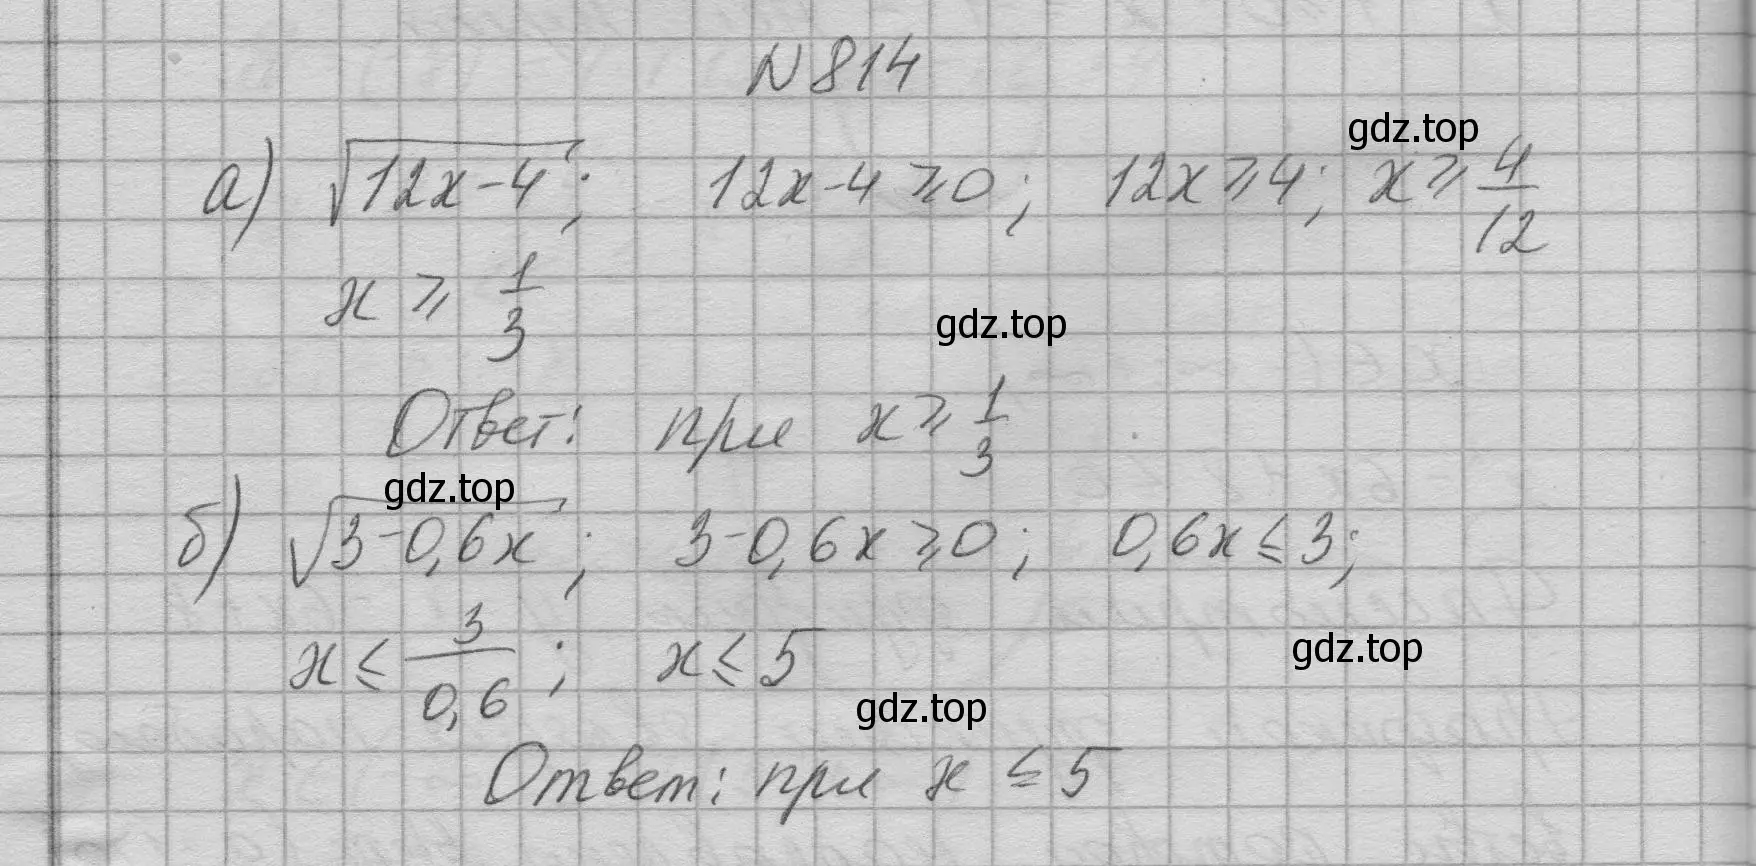 N 814
gdz.top
а) √(12x-4); 12x-4⩾0; 12x⩾4; x⩾4/12
x ⩾ 1/3
gdz.top
Ответ: при x⩾1/3
gdz.top
б) √(3-0,6x); 3-0,6x⩾0; 0,6x≤3;
x≤3/0,6; x≤5
gdz.top
gdz.top
Ответ: при x ≤ 5